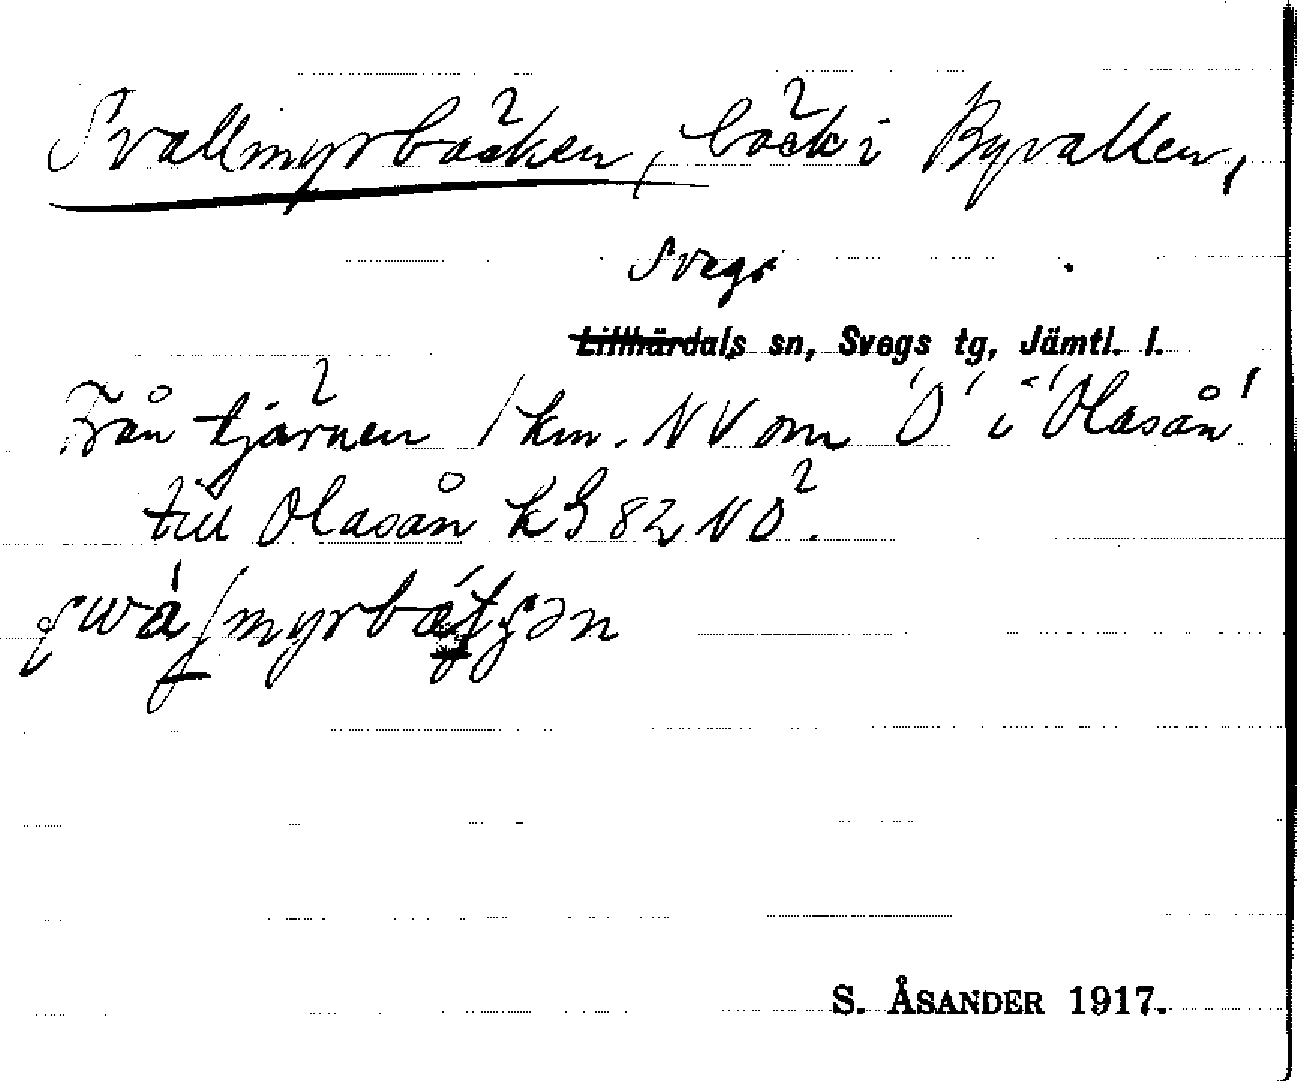 Svallmyrbäcken, bäck i Byvallen,
Svegs
Lillhärdals sn, Svegs tg, Jämtl. l.
Från tjärnen 1 km. NV om 'O' i 'Olasån'
till Olasån kG 82 NO.
S. ÅSANDER 1917.